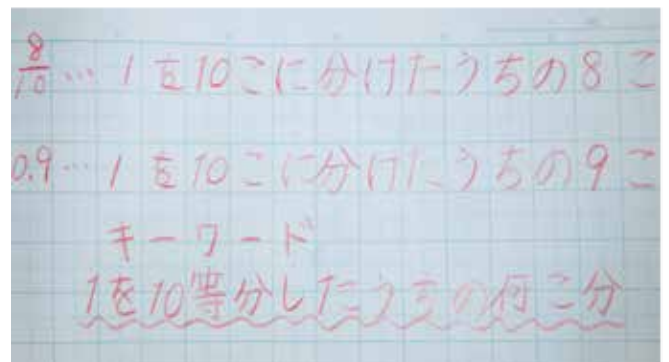 8/10… 1を10こに分けたうちの8こ
0.9… 1を10こに分けたうちの9こ
キーワード
1を10等分したうちの何こ分